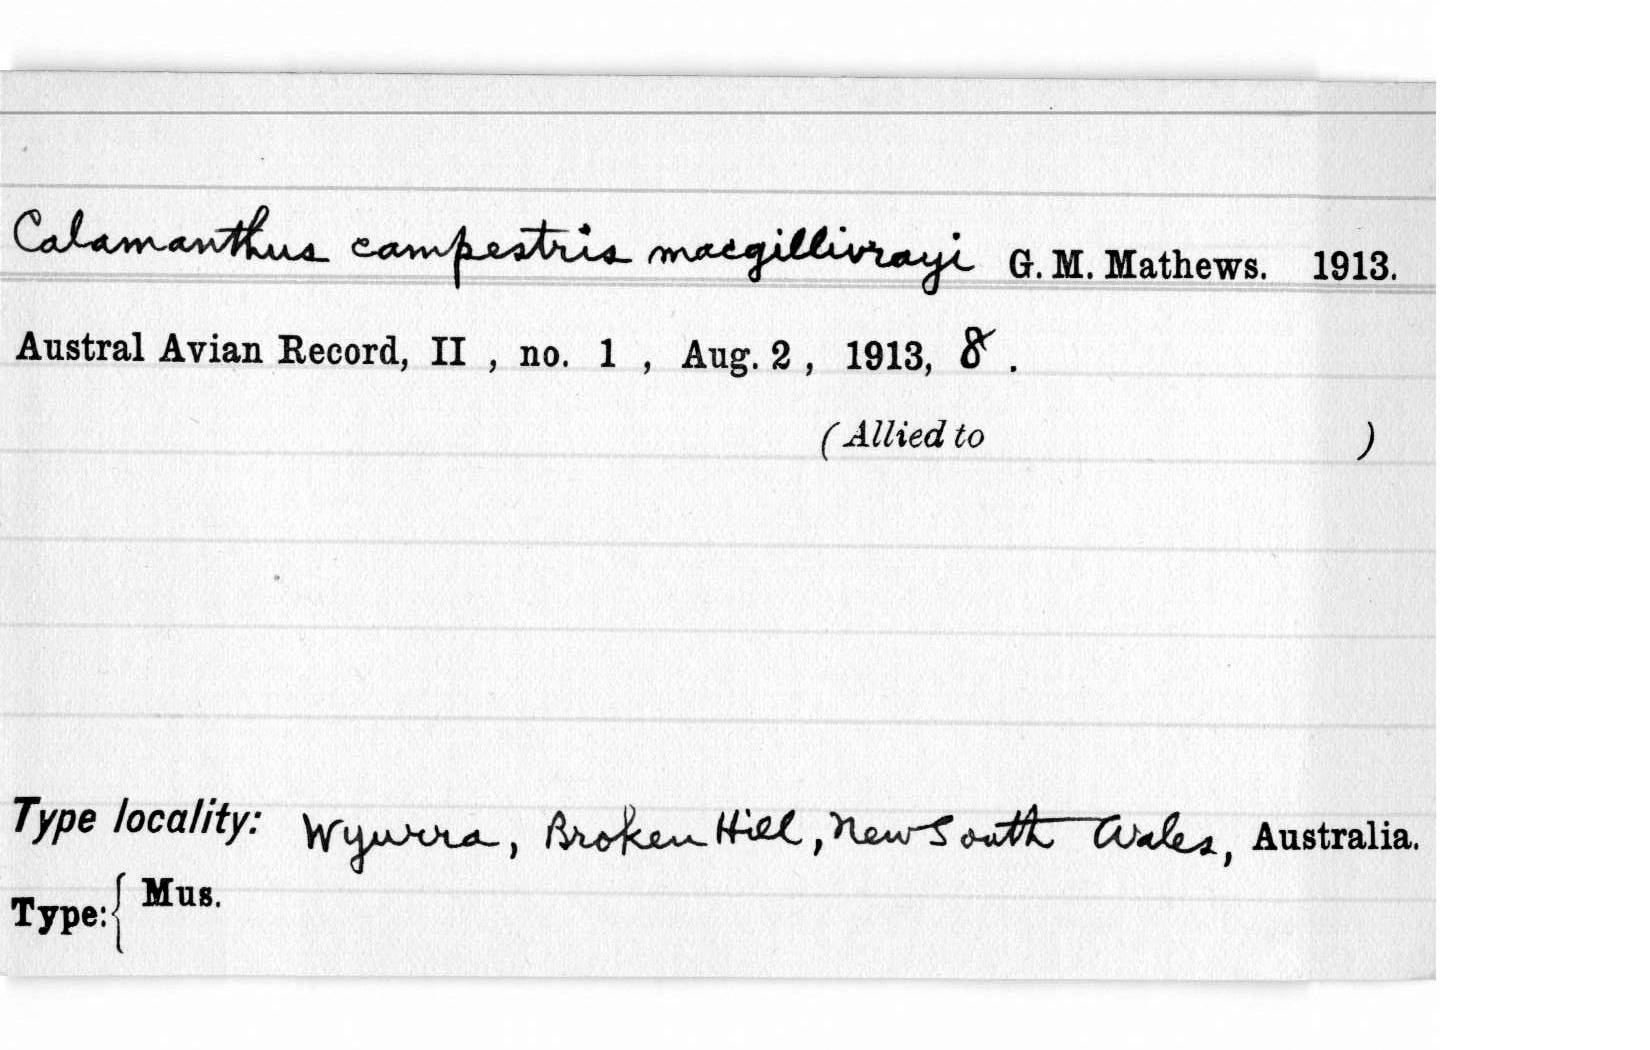 Calamanthus campestris macgillivrayi G. M. Mathews. 1913.
Austral Avian Record, II , no. 1 , Aug. 2 , 1913, 8 .
(Allied to )
Type locality: Wyurra, Broken Hill, New South Wales, Australia.
Type: { Mus.